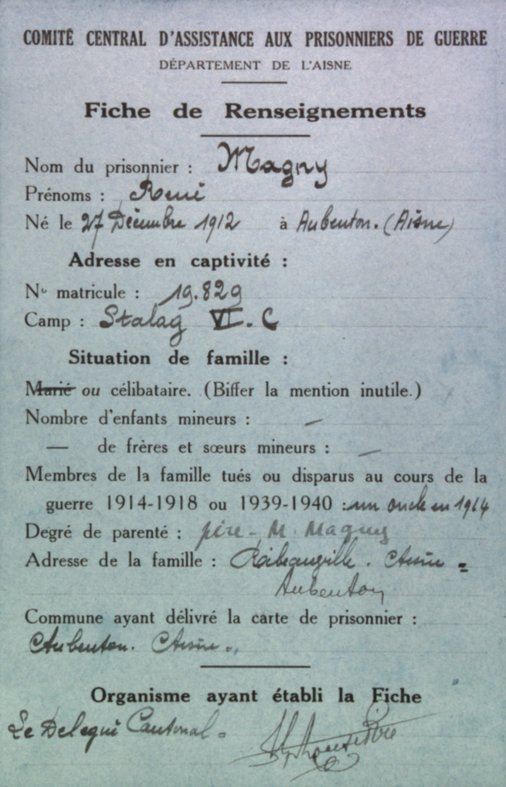 COMITÉ CENTRAL D'ASSISTANCE AUX PRISONNIERS DE GUERRE
DÉPARTEMENT DE L'AISNE
Fiche de Renseignements
Nom du prisonnier : Magny
Prénoms : René
Né le 27 Décembre 1912 à Aubenton. (Aisne)
Adresse en captivité :
No matricule : 19.829
Camp : Stalag VI. C
Situation de famille :
Marié ou célibataire. (Biffer la mention inutile.)
Nombre d'enfants mineurs : —
— de frères et sœurs mineurs : —
Membres de la famille tués ou disparus au cours de la
guerre 1914-1918 ou 1939-1940 : un oncle en 1914
Degré de parenté : père - M. Magny
Adresse de la famille : Aisne =
Aubenton
Commune ayant délivré la carte de prisonnier :
Aubenton. Aisne.
Organisme ayant établi la Fiche
Le Delegué Cantonal -